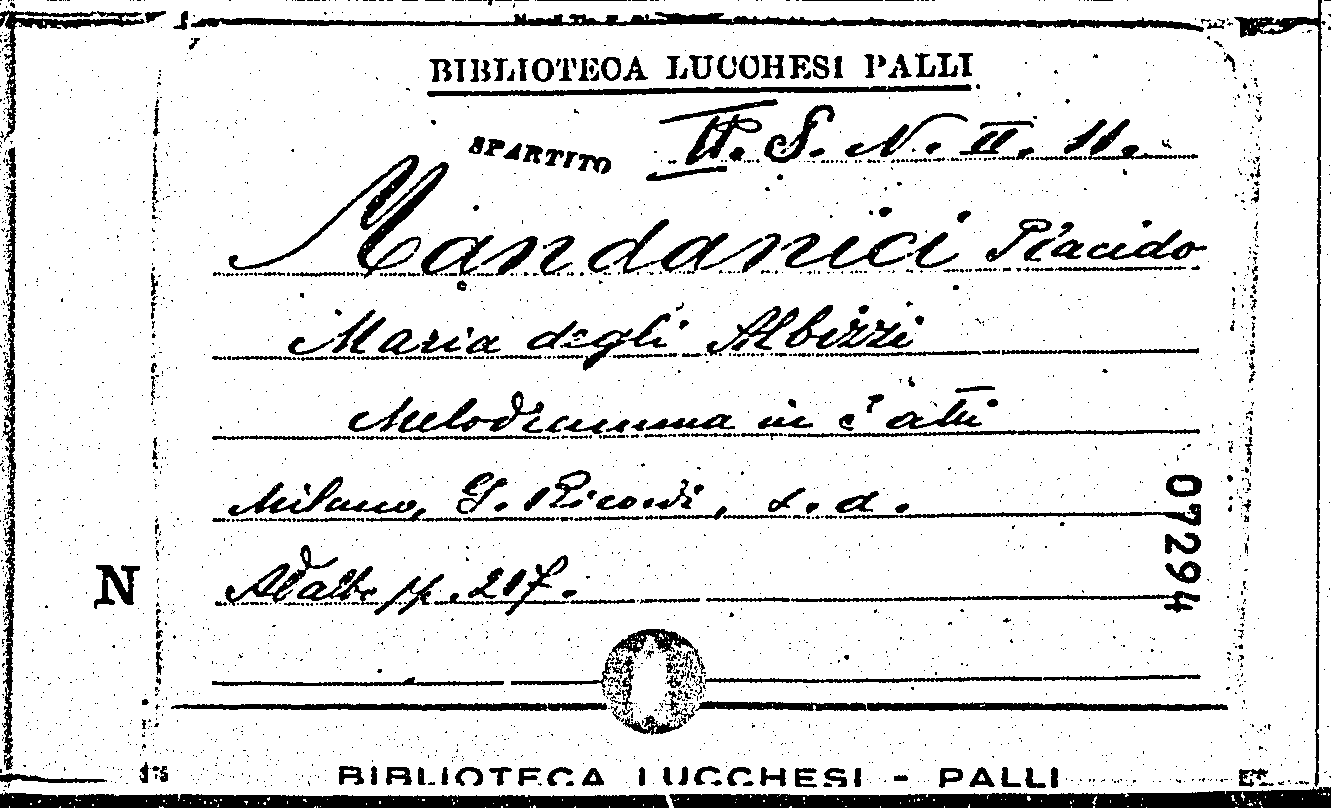 BIBLIOTECA LUCCHESI PALLI
SPARTITO II. S. N. II. 11.
Mandanici Placido
Maria degli Albizzi
Melodramma in 3 atti
Milano, G. Ricordi, s. d.
Ad alb. pp. 217.
N
07294
BIBLIOTECA LUCCHESI - PALLI